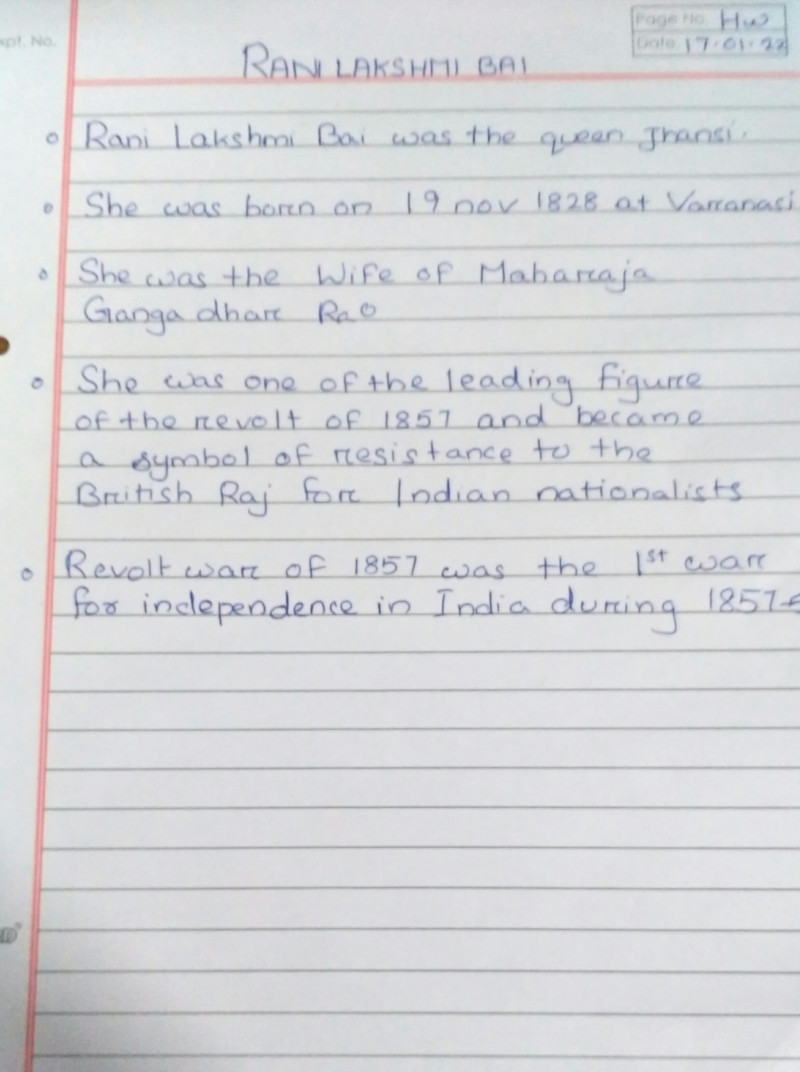 Page No. HW
Expt. No.
Date 17.01.22
RANI LAKSHMI BAI
Rani Lakshmi Bai was the queen Jhansi.
She was born on 19 nov 1828 at Varanasi
She was the Wife of Maharaja
Ganga dhar Rao
She was one of the leading figure
of the revolt of 1857 and became
a symbol of resistance to the
British Raj for Indian nationalists
Revolt war of 1857 was the 1st war
for independence in India during 1857-